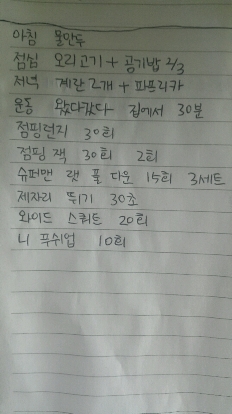 아침 물만두
점심 오리고기 + 공기밥 2/3
저녁 계란 2개 + 파프리카
운동 왔다갔다 집에서 30분
점핑런지 30회
점핑 잭 30회 2회
슈퍼맨 랫 풀 다운 15회 3세트
제자리 뛰기 30초
와이드 스쿼트 20회
니 푸쉬업 10회